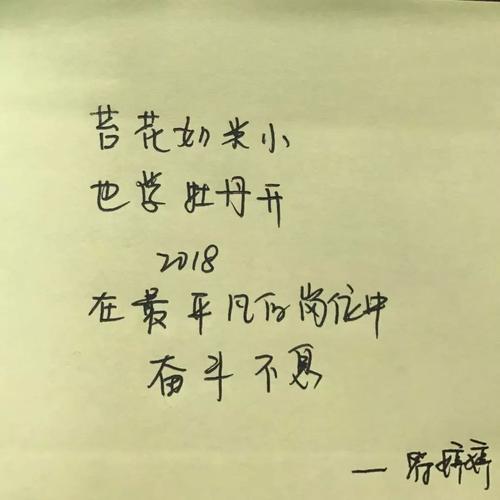 苔花如米小
也学牡丹开
2018
在最平凡的岗位中
奋斗不息
—婷婷